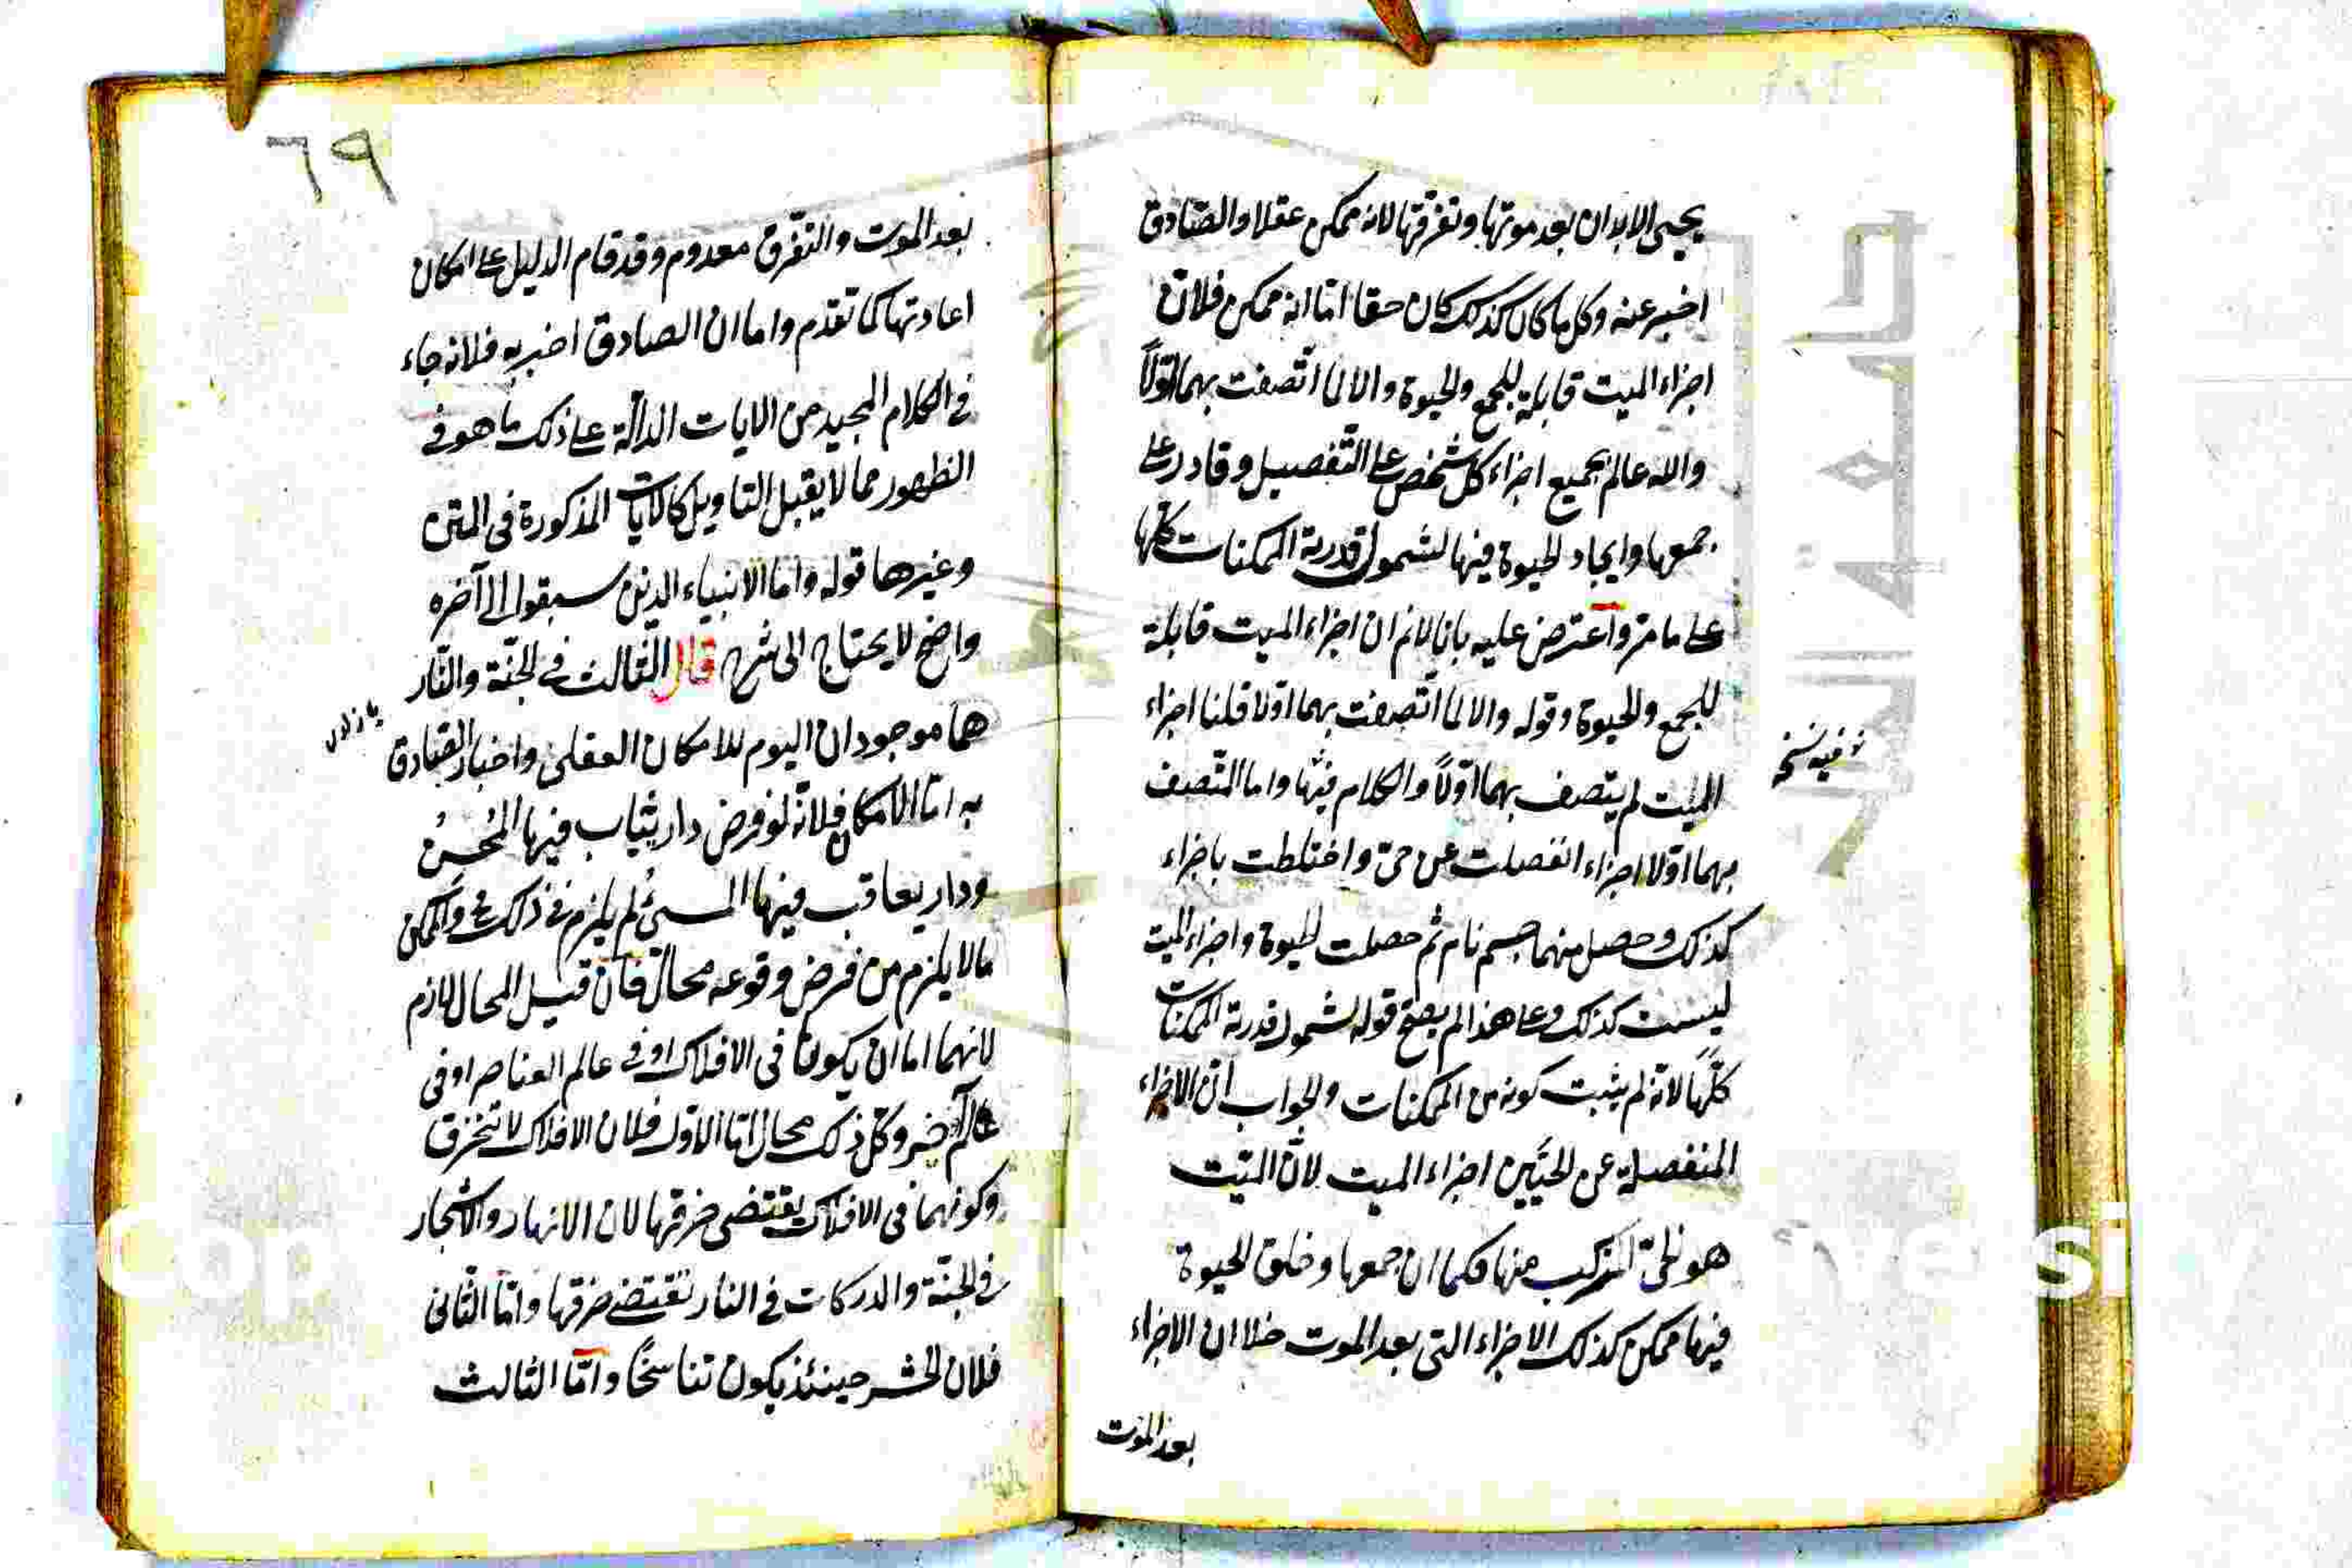 يحيى الابدان بعد موتها وتفرقها لانه ممكن عقلا والصّادق
اخبر عنه وكل ما كان كذلك كان حقا امّا انه ممكن فلان
اجزاء الميت قابلة للجمع والحيوة والا لما اتّصفت بهما اوّلاً
والله عالم بجميع اجزاء كل شخص على التّفصيل وقادر على
جمعها وايجاد الحيوة فيها لشمول قدرته الممكنات كلّها
على ما مرّ واعترض عليه بانا لانم ان اجزاء الميت قابلة
للجمع والحيوة وقوله والا لما اتّصفت بهما اوّلا قلنا اجزاء
الميت لم يتّصف بهما اوّلاً والكلام فيها واما المتّصف
بهما اوّلا اجزاء انفصلت عن حىّ واختلطت باجزاء
كذلك وحصل منهما جسم نام ثم حصلت الحيوة واجزاء الميت
ليست كذلك وعلى هذا لم يصحّ قوله لشمول قدرته الممكنات
كلّها لانّه لم يثبت كونه من الممكنات والجواب انّ الاجزاء
المنفصلة عن الحيّين اجزاء الميت لانّ الميّت
هو الحىّ المركب منها فكما ان جمعها وخلق الحيوة
فيها ممكن كذلك الاجزاء التى بعد الموت خلا ان الاجزاء
بعد الموت
فيه نسخ
٦٩
بعد الموت والتفرّق معدوم وقد قام الدليل على امكان
اعادتها كما تقدّم واما ان الصادق اخبر به فلانه جاء
فى الكلام المجيد من الايات الدالّة على ذلك ما هو فى
الظهور مما لا يقبل التاويل كالايات المذكورة فى المتن
وغيرها قوله واما الانبياء الذين سبقوا الى آخره
واضح لا يحتاج الى شرح قال الثالث فى الجنّة والنّار
هما موجودان اليوم للامكان العقلى واخبار الصّادق
به امّا الامكان فلانّه لو فرض دار يثاب فيها المُحسنُ
ودار يعاقب فيها المسىء لم يلزم فى ذلك مح والممكن
ما لا يلزم من فرض وقوعه محال فان قيل المحال لازم
لانهما اما ان يكونا فى الافلاك او فى عالم العناصر او فى
عالم آخر وكلّ ذلك محال امّا الاوّل فلان الافلاك لا تنخرق
وكونهما فى الافلاك يقتضى خرقها لان الانهار والاشجار
فى الجنّة والدركات فى النار تقتضى خرقها وامّا الثّانى
فلان الحشر حينئذ يكون تناسخًا وامّا الثالث